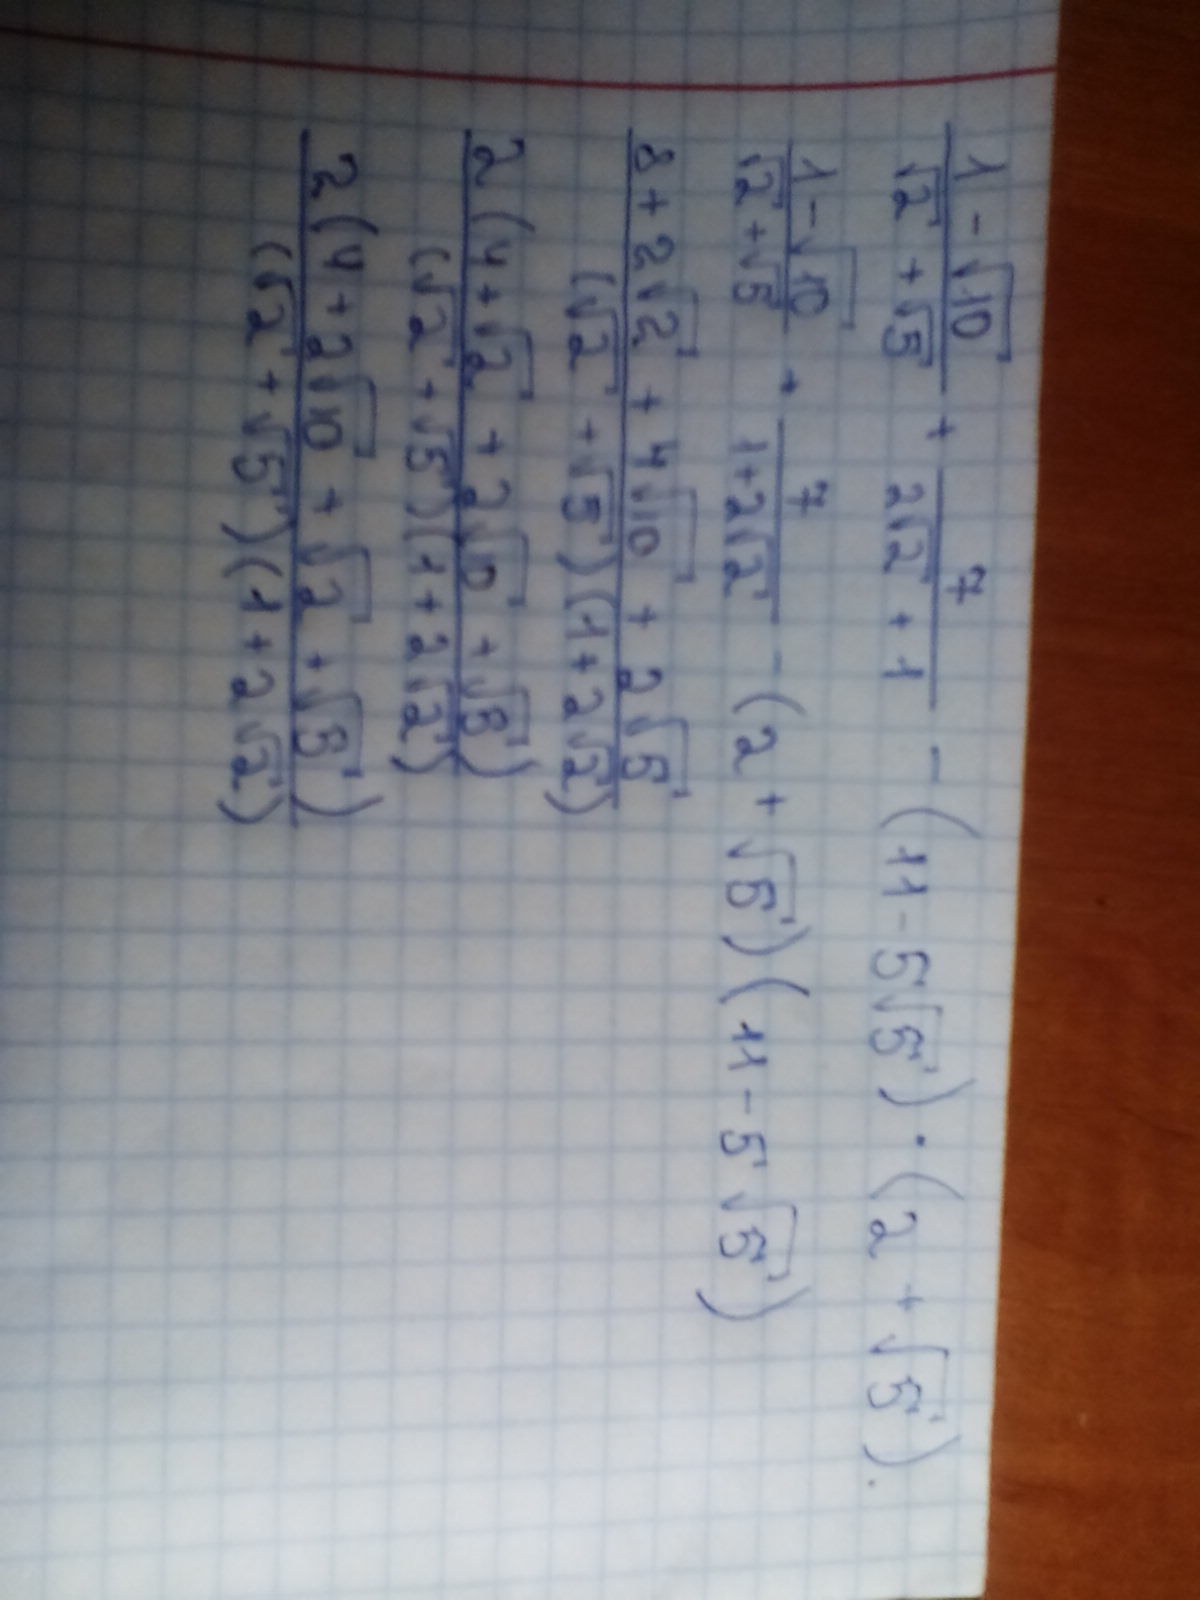 (1-√10)/(√2+√5) + 7/(2√2+1) - (11-5√5)·(2+√5).
(1-√10)/(√2+√5) + 7/(1+2√2) - (2+√5)(11-5√5)
(8+2√2+4√10+2√5)/((√2+√5)(1+2√2))
(2(4+√2+2√10+√5))/((√2+√5)(1+2√2))
(2(4+2√10+√2+√5))/((√2+√5)(1+2√2))